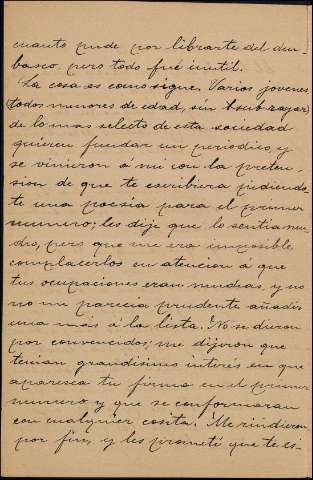 cuanto pude por librarte del chu-
basco, pero todo fué inutil.
La cosa es como sigue. Varios jovenes
(todos menores de edad, sin subrayar)
de lo mas selecto de esta sociedad
quieren fundar un periodico, y
se vinieron á mi con la preten-
sion de que te escribiera pidiendo-
te una poesía para el primer
numero; les dije que lo sentía mu-
cho, pero que me era imposible
complacerlos en atencion á que
tus ocupaciones eran muchas, y no
me parecia prudente añadir
una más á la lista. No se dieron
por convencidos; me dijeron que
tenian grandísimo interés en que
aparesca tu firma en el primer
numero y que se conformaran
con cualquier cosita. Me rindieron
por fin, y les prometí que te es-